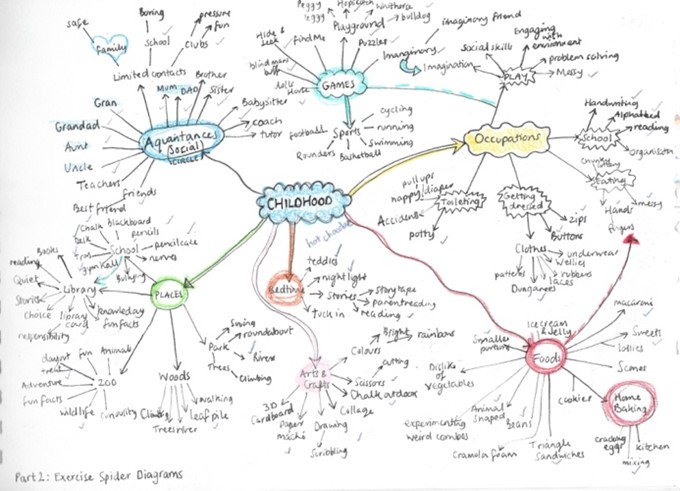 Peggy
leggy
Hopscotch
bulldog
Playground
Hide &
seek
Find Me
Puzzles
blind mans
buff
dolls
House
GAMES
Imaginary
imaginary friend
Imagination
Social skills
Engaging
with
environment
problem solving
Messy
PLAY
safe
Family
Boring
School
pressure
fun
Clubs
Limited contacts
Mum
DAD
Brother
Sister
Gran
Grandad
Aunt
Uncle
Teachers
Friends
Best friend
Babysitter
coach
tutor
Aquantances
(Social)
CIRCLE
football
Sports
cycling
running
Swimming
Basketball
Rounders
Occupations
Handwriting
Alphabet
reading
organisation
School
Eating
messy
Hands
fingers
pull ups
nappy/diaper
Accidents
potty
Toileting
Getting
dressed
zips
Buttons
Clothes
underwear
wellies
rubbers
laces
patterns
Dungarees
CHILDHOOD
hot chocolate
Chalk
blackboard
pencils
pencilcase
desk
School
gym hall
nerves
Bullying
Books
reading
Quiet
Stories
Choice
library
card
responsibility
knowledge
fun facts
Library
PLACES
Bedtime
teddies
night light
Stories
Story tape
parent reading
reading
tuck in
Park
Swing
roundabout
River
Trees
Climbing
dayout
treat
fun
Animals
Adventure
fun facts
Wildlife
curiosity
ZOO
Woods
walking
leaf pile
River
Trees
Climbing
Arts &
Crafts
Colours
Bright
rainbows
cutting
Scissors
Chalk outdoor
Collage
Drawing
Scribbling
Paper
maché
3D
Cardboard
Foods
Icecream
& Jelly
Smaller
portions
Dislike
of
Vegetables
experimenting
weird combos
Animal
Shaped
Beans
Triangle
Sandwiches
cookies
macaroni
Sweets
lollies
Scones
Home
Baking
cracking
eggs
mixing
kitchen
Part 2: Exercise Spider Diagrams